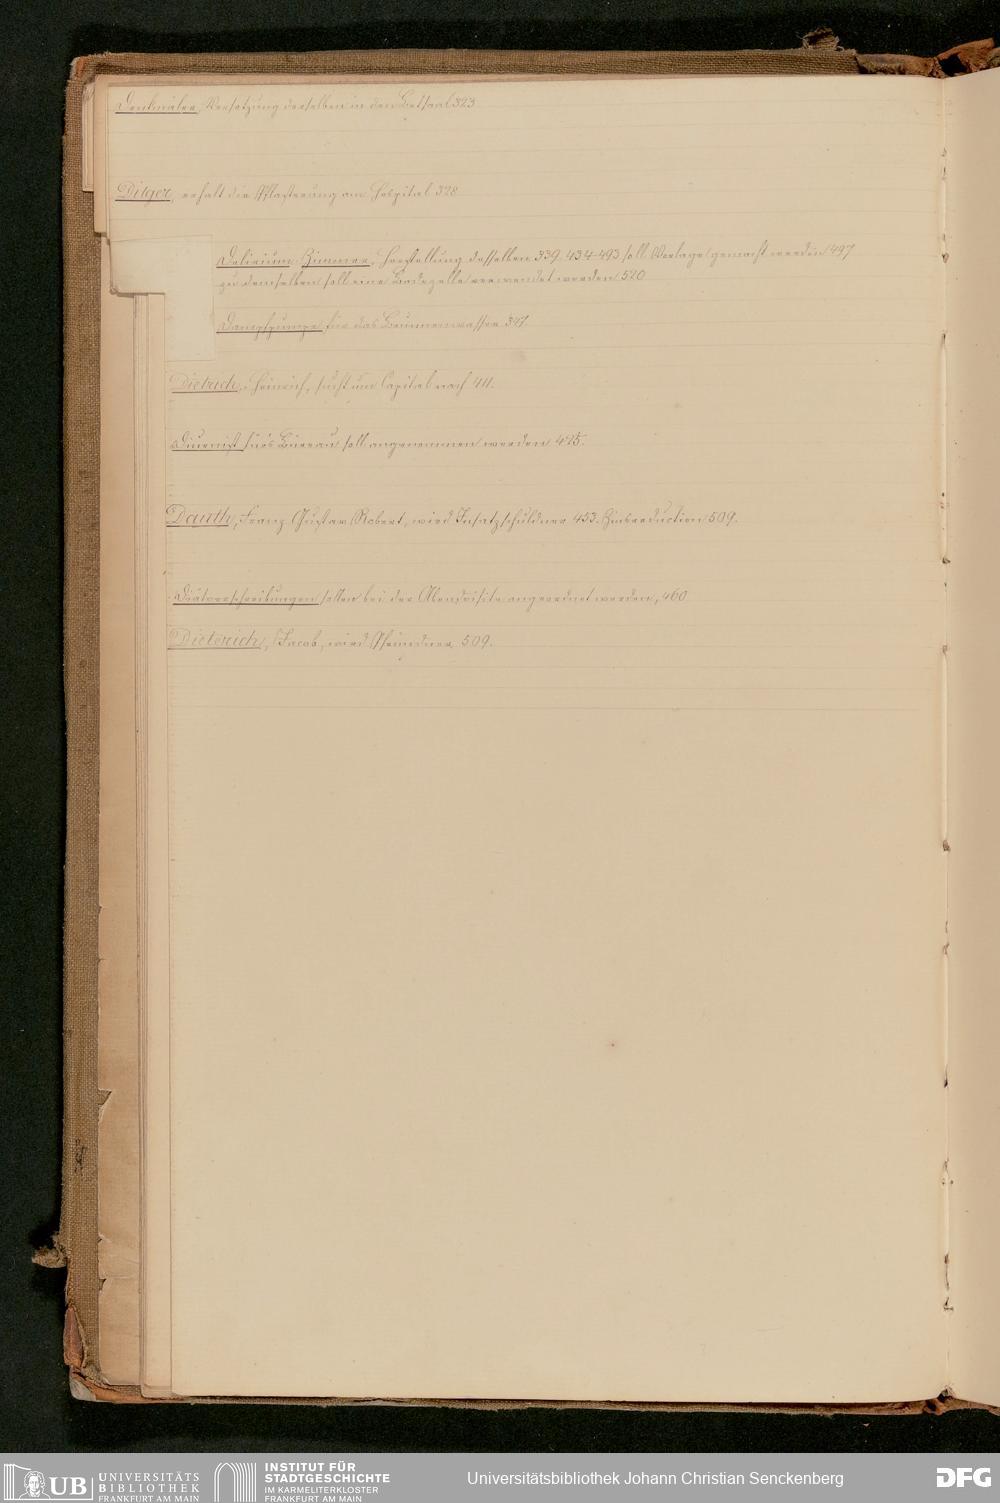 Denkmäler, Versetzung derselben in den Betsaal 323
Dilger, erhält die Pflasterung am Hospital 328
Delirium-Zimmer, Herstellung desselben 339. 434-493 soll Vorlage gemacht werden 497
zu demselben soll eine Badezelle verwendet werden 520
Dampfpumpe für das Brunnenwasser 347.
Dietrich, Heinrich, sucht um Capital nach 411.
Diurnist für's Büreau soll angenommen werden 425.
Dauth, Franz Gustav Robert, wird Insatzschuldner 453. Zinsreduction 509.
Diätvorschreibungen sollen bei der Abendvisite angeordnet werden, 460
Dieterich, Jacob, wird Pfründner 509.
UB UNIVERSITÄTS
BIBLIOTHEK
FRANKFURT AM MAIN
INSTITUT FÜR
STADTGESCHICHTE
IM KARMELITERKLOSTER
FRANKFURT AM MAIN
Universitätsbibliothek Johann Christian Senckenberg
DFG